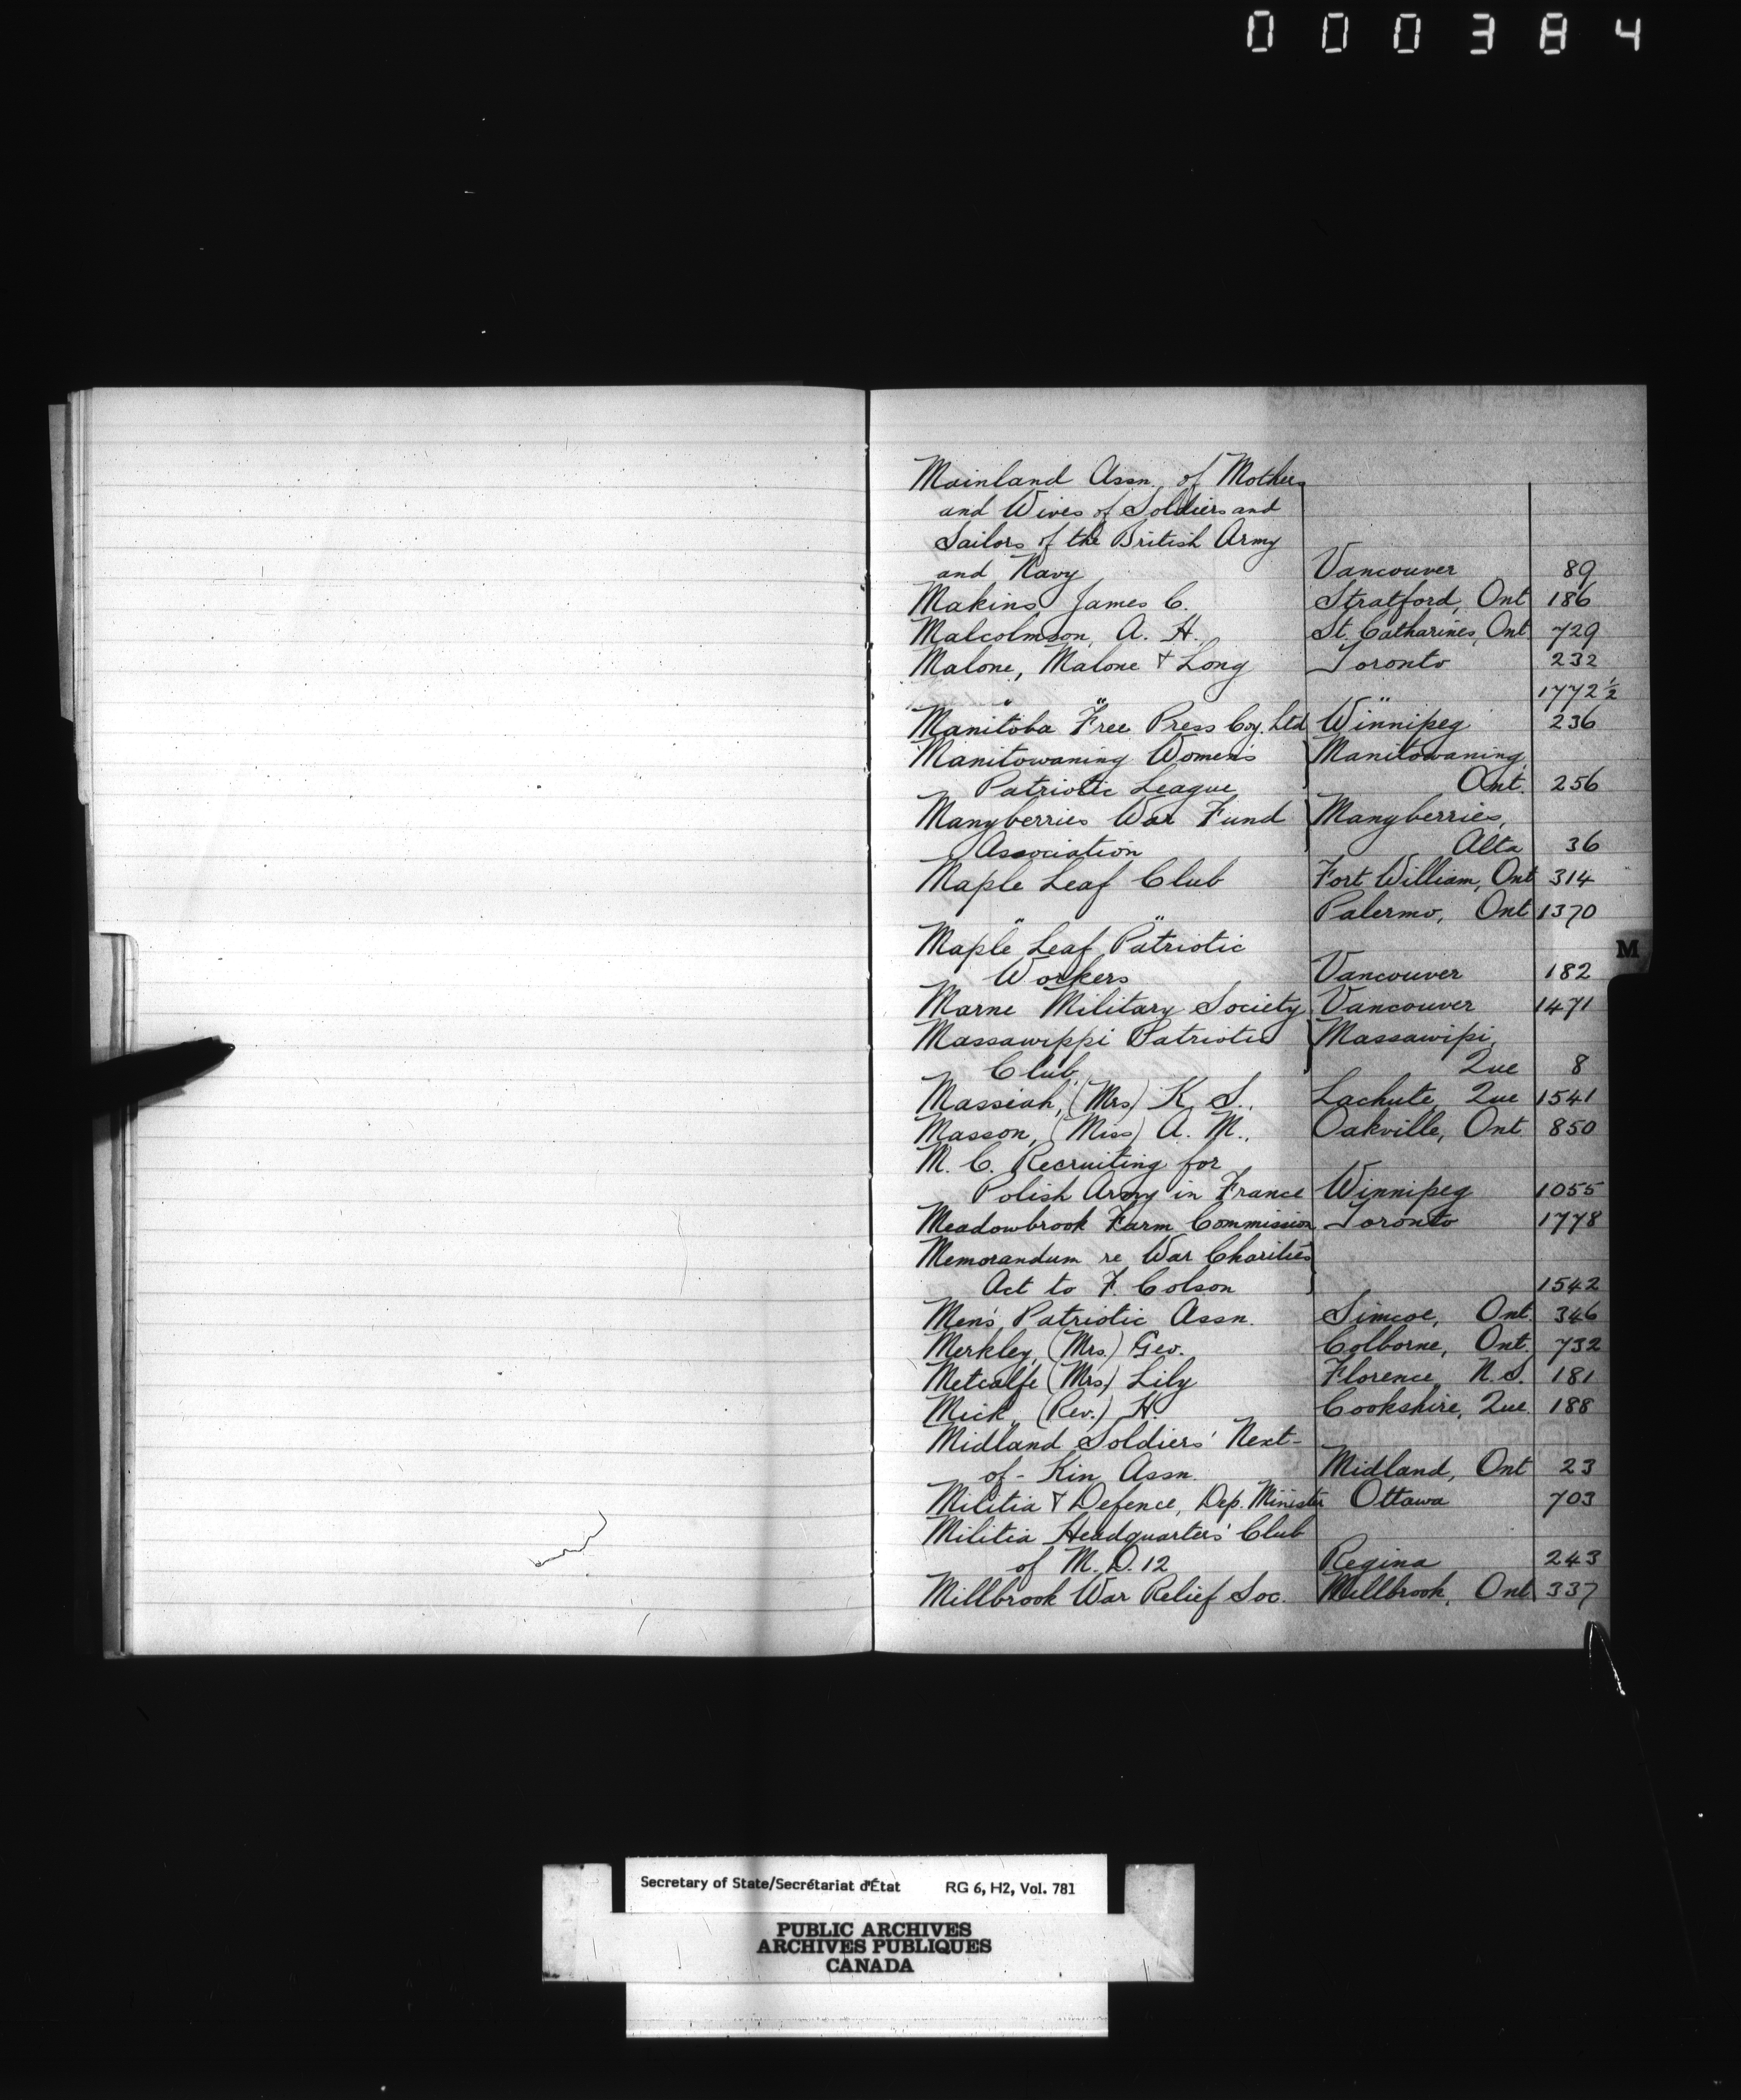 000384
Mainland Assn. of Mothers
and Wives of Soldiers and
Sailors of the British Army
and Navy Vancouver 89
Makins James C. Stratford, Ont 186
Malcolmson, A. H. St. Catharines, Ont 729
Malone, Malone & Long Toronto 232
" " " 1772 ½
Manitoba Free Press Coy. Ltd Winnipeg 236
Manitowaning Women's Manitowaning,
Patriotic League Ont. 256
Manyberries War Fund Manyberries,
Association Alta 36
Maple Leaf Club Fort William, Ont 314
" " Palermo, Ont 1370
Maple Leaf Patriotic
Workers Vancouver 182
Marne Military Society Vancouver 1471
Massawippi Patriotic Massawipi,
Club Que 8
Massiah, (Mrs) K. S., Lachute, Que 1541
Masson, (Miss) A. M., Oakville, Ont 850
M. C. Recruiting for
Polish Army in France Winnipeg 1055
Meadowbrook Farm Commission Toronto 1778
Memorandum re War Charities
Act to F. Colson 1542
Men's Patriotic Assn. Simcoe, Ont. 346
Merkley, (Mrs.) Geo. Colborne, Ont. 732
Metcalfe (Mrs) Lily Florence, N.S. 181
Mick, (Rev.) H. Cookshire, Que. 188
Midland Soldiers' Next-
of-Kin Assn. Midland, Ont 23
Militia & Defence, Dep. Minister Ottawa 703
Militia Headquarters' Club
of M.D. 12 Regina 243
Millbrook War Relief Soc. Millbrook, Ont. 337
M
Secretary of State/Secrétariat d'État RG 6, H2, Vol. 781
PUBLIC ARCHIVES
ARCHIVES PUBLIQUES
CANADA